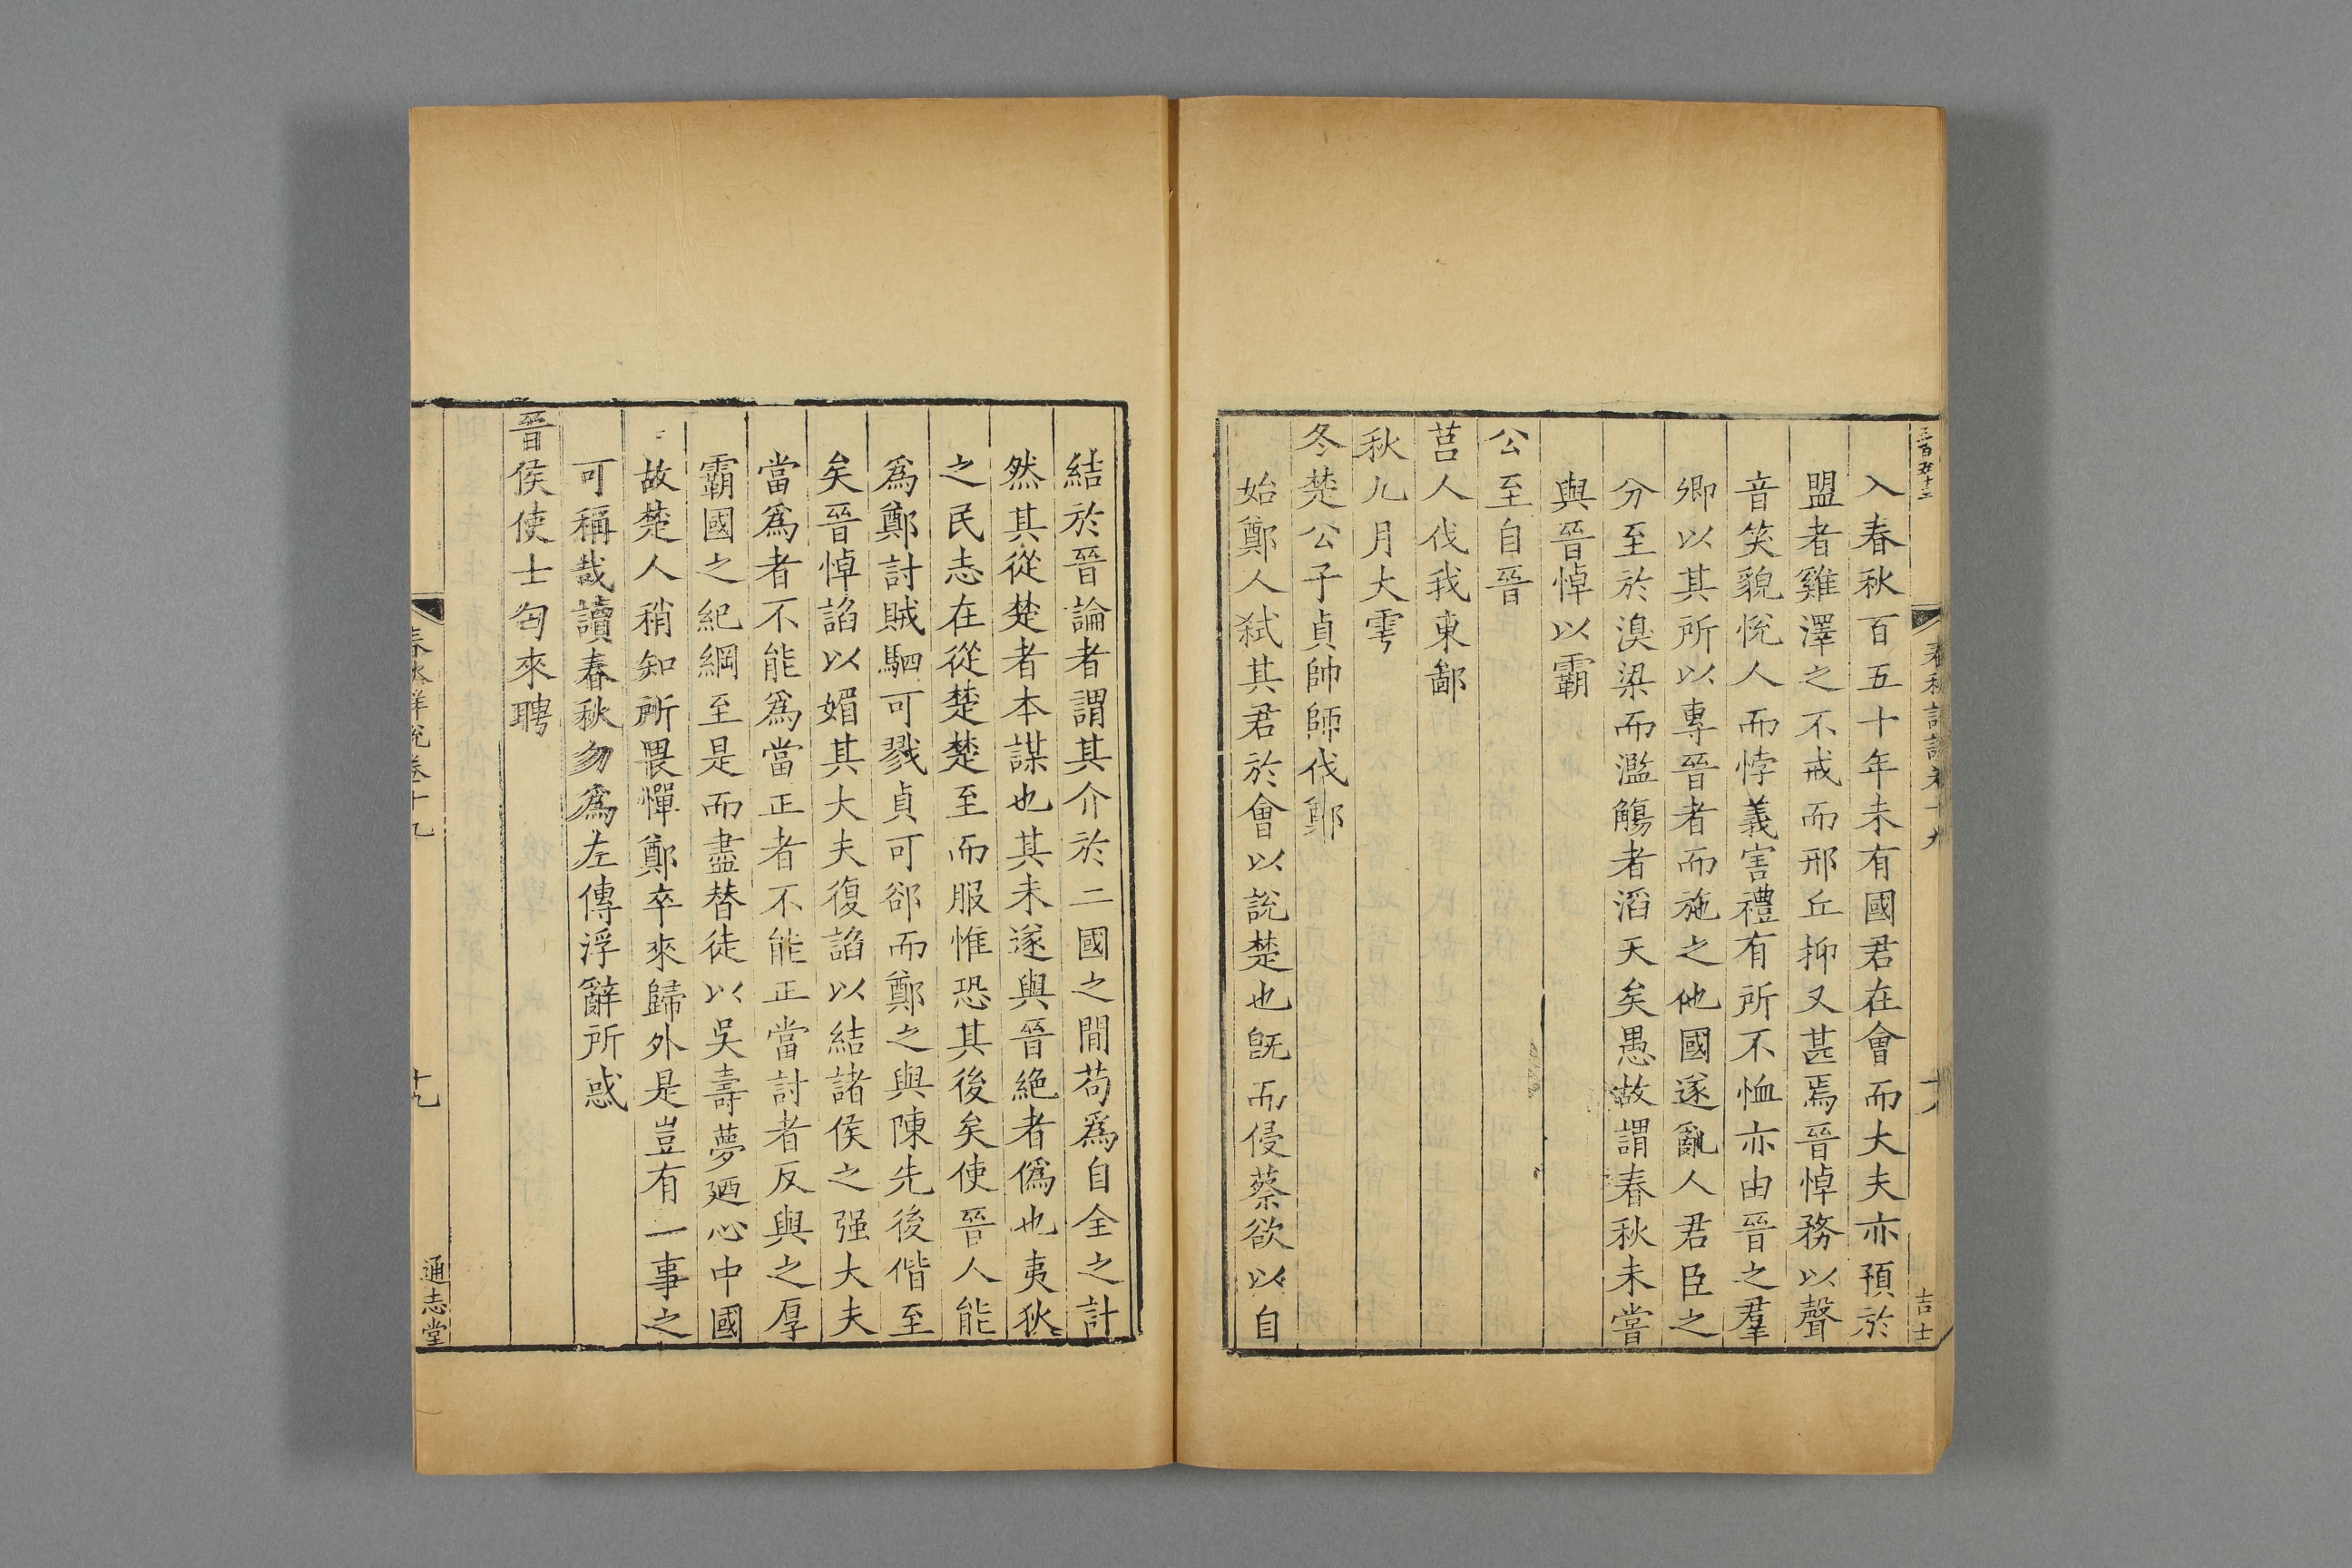 入春秋百五十年未有國君在會而大夫亦預於
盟者雞澤之不戒而邢丘抑又甚焉晉悼務以聲
音笑貌恱人而悖義害禮有所不恤亦由晉之羣
卿以其所以專晉者而施之他國遂亂人君臣之
分至於溴梁而濫觴者滔天矣愚故謂春秋未嘗
與晉悼以霸
公至自晉
莒人伐我東鄙
秋九月大雩
冬楚公子貞帥師伐鄭
始鄭人弑其君於會以說楚也旣而侵蔡欲以自
結於晉論者謂其介於二國之間苟爲自全之計
然其從楚者本謀也其未遂與晉絶者僞也夷狄
之民志在從楚楚至而服惟恐其後矣使晉人能
爲鄭討賊駟可戮貞可郤而鄭之與陳先後偕至
矣晉悼諂以媚其大夫復諂以結諸侯之强大夫
當爲者不能爲當正者不能正當討者反與之厚
霸國之紀綱至是而盡替徒以吳壽夢廼心中國
故楚人稍知所畏憚鄭卒來歸外是豈有一事之
可稱哉讀春秋勿爲左傳浮辭所惑
晉侯使士匄來聘
春秋詳說卷十九
十九
通志堂